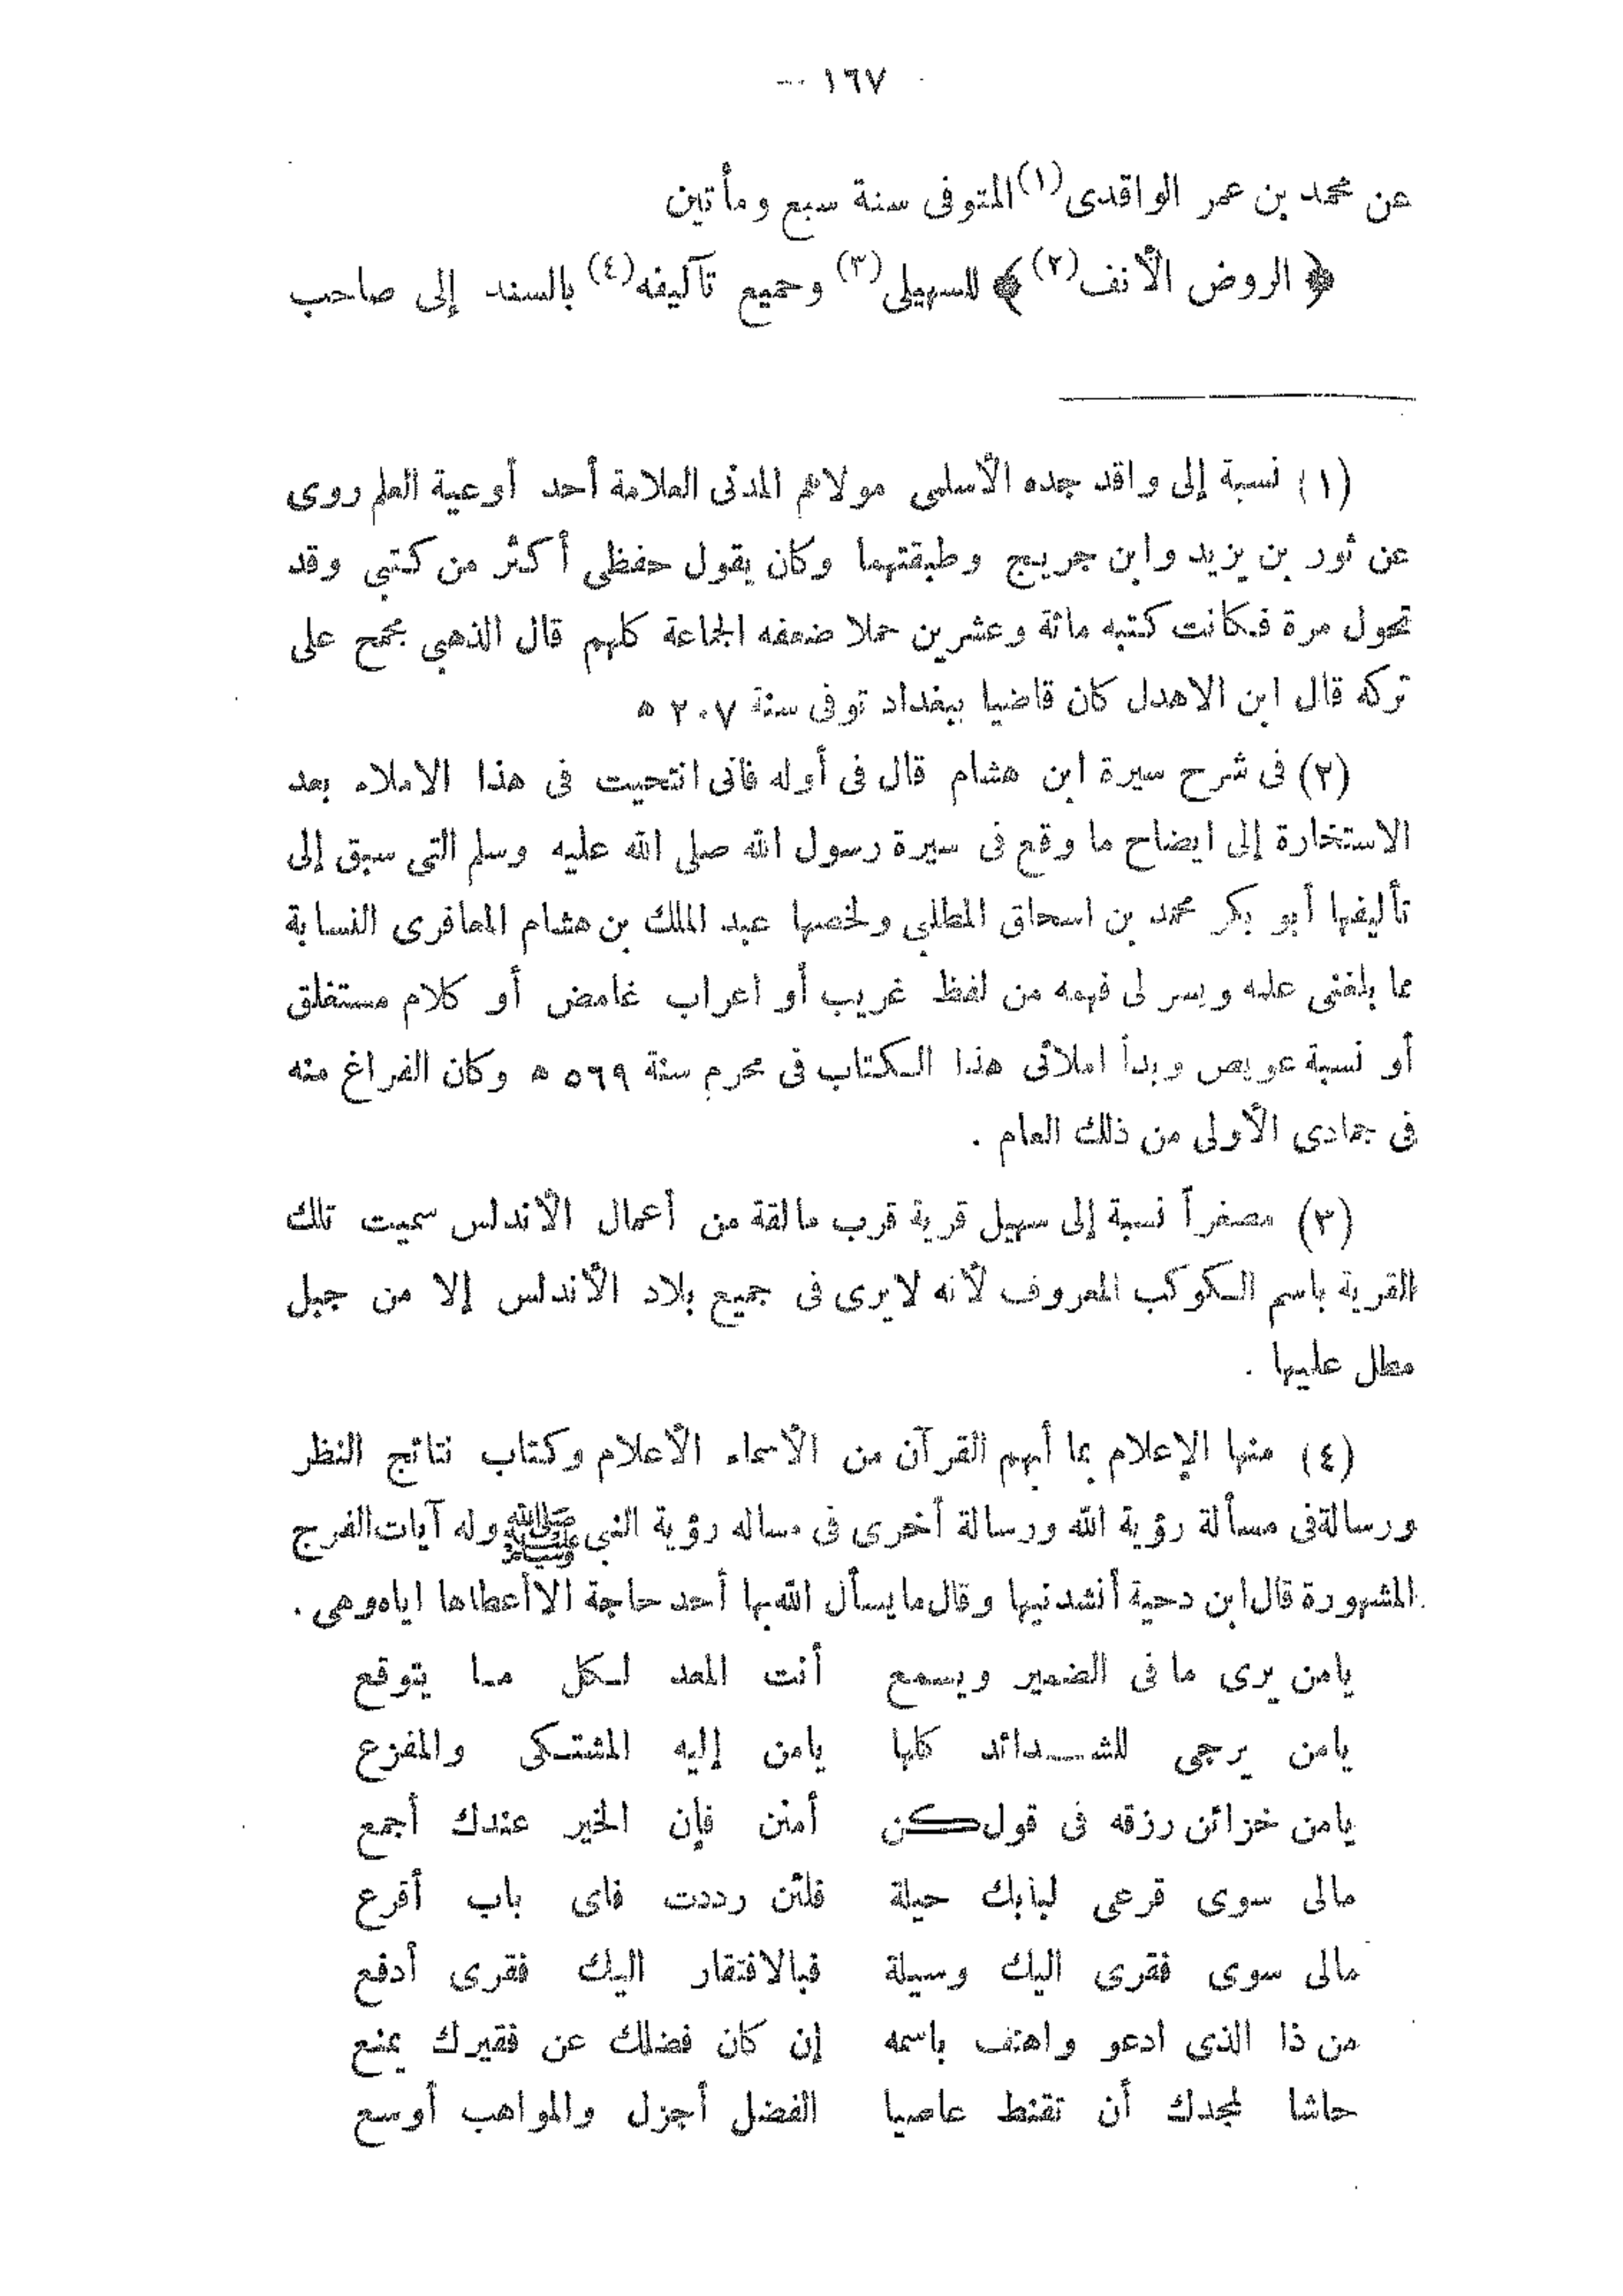 ١٦٧ --
عن محمد بن عمر الواقدى (١) المتوفى سنة سبع ومأتين
﴿ الروض الأنف (٢) ﴾ للسهيلى (٣) وجميع تآليفه (٤) بالسند إلى صاحب
(١) نسبة إلى واقد جده الأسلمى مولاهم المدنى العلامة أحد أوعية العلم روى
عن ثور بن يزيد وابن جريج وطبقتهما وكان يقول حفظى أكثر من كتبى وقد
تحول مرة فكانت كتبه مائة وعشرين حملا ضعفه الجماعة كلهم قال الذهبى مجمح على
تركه قال ابن الاهدل كان قاضيا ببغداد توفى سنة ٢٠٧ ه
(٢) فى شرح سيرة ابن هشام قال فى أوله فانى انتحيت فى هذا الاملاء بعد
الاستخارة إلى ايضاح ما وقع فى سيرة رسول الله صلى الله عليه وسلم التى سبق إلى
تأليفها أبو بكر محمد بن اسحاق المطلبى ولخصها عبد الملك بن هشام المعافرى النسابة
مما بلغنى علمه ويسر لى فهمه من لفظ غريب أو اعراب غامض أو كلام مستغلق
أو نسبة عويص وبدأ املائى هذا الكتاب فى محرم سنة ٥٦٩ ه وكان الفراغ منه
فى جمادى الأولى من ذلك العام .
(٣) مصغراً نسبة إلى سهيل قرية قرب مالقة من أعمال الأندلس سميت تلك
القرية باسم الكوكب المعروف لأنه لا يرى فى جميع بلاد الأندلس إلا من جبل
مطل عليها .
(٤) منها الإعلام بما أبهم القرآن من الأسماء الأعلام وكتاب نتائج النظر
ورسالة فى مسألة رؤية الله ورسالة أخرى فى مساله رؤية النبى ﷺ وله آيات الفرج
المشهورة قال ابن دحية أنشدنيها وقال ما يسأل الله بها أحد حاجة الا أعطاها اياه وهى .
يامن يرى ما فى الضمير ويسمع أنت المعد لكل ما يتوقع
يامن يرجى للشدائد كلها يامن إليه المشتكى والمفزع
يامن خزائن رزقه فى قول كن أمنن فإن الخير عندك أجمع
مالى سوى قرعى لبابك حيلة فلئن رددت فاى باب أقرع
مالى سوى فقرى اليك وسيلة فبالافتقار اليك فقرى أدفع
من ذا الذى ادعو واهتف باسمه إن كان فضلك عن فقيرك يمنع
حاشا لمجدك أن تقنط عاصيا الفضل أجزل والمواهب أوسع